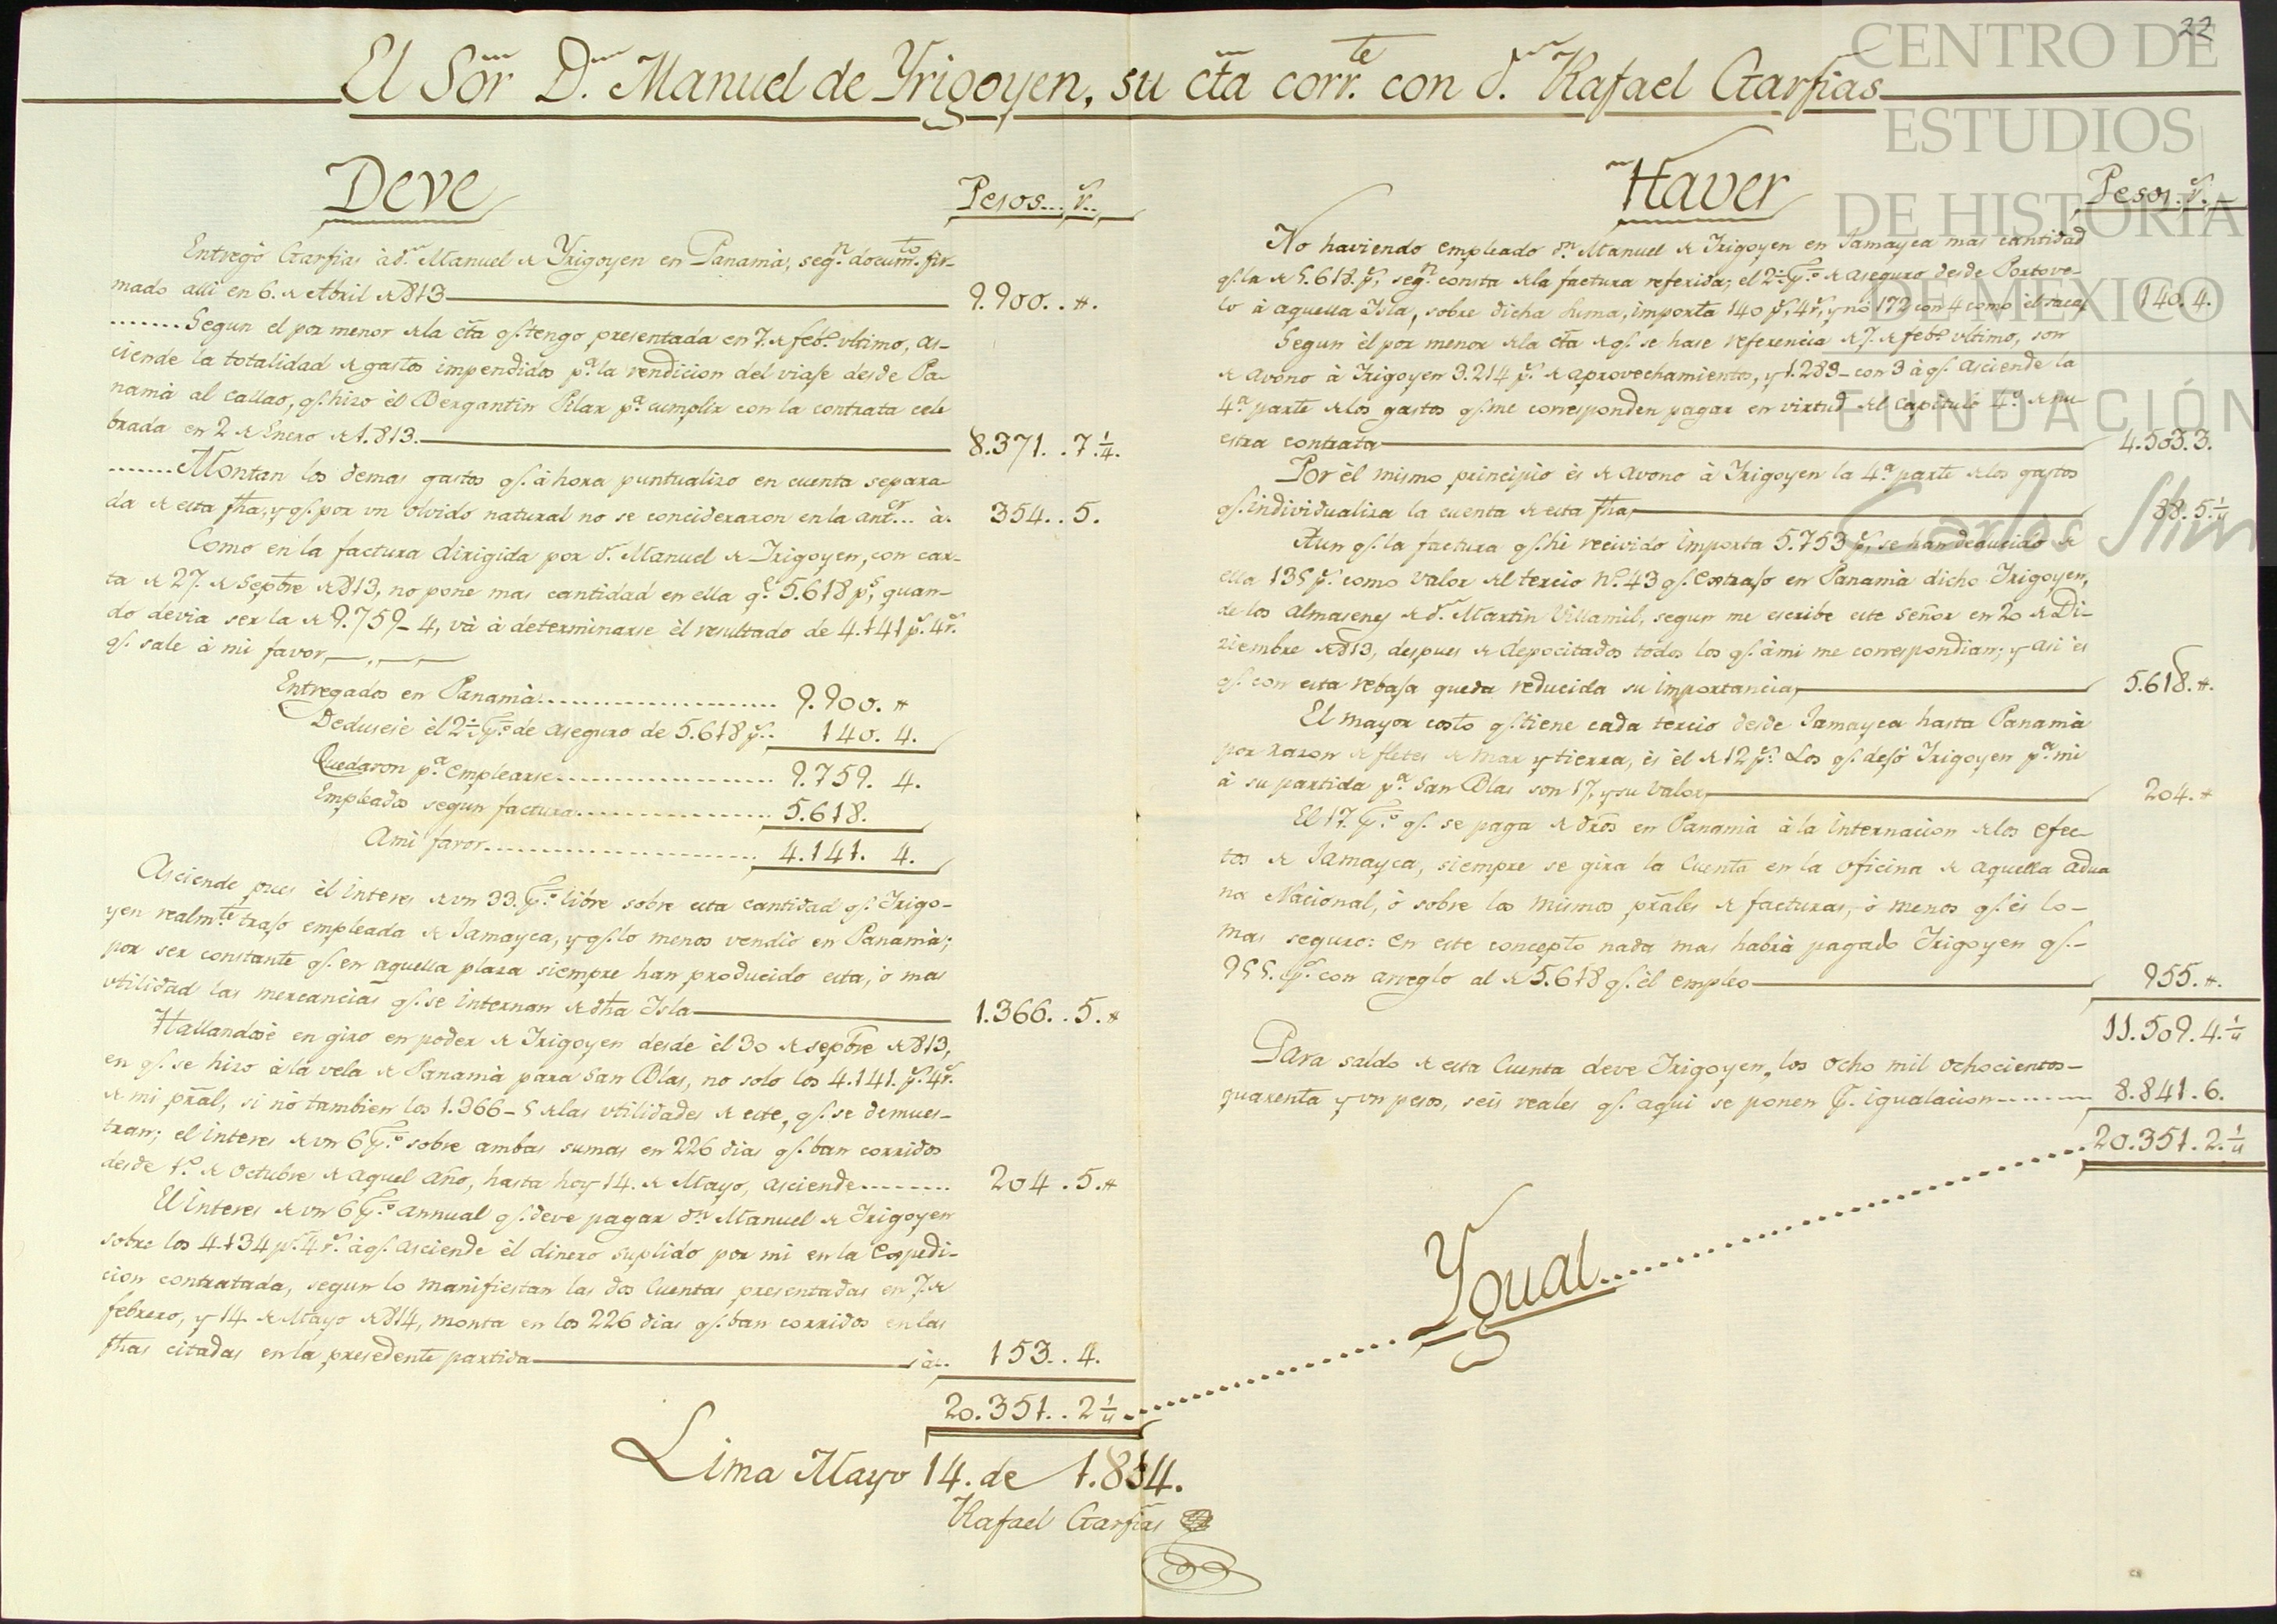 22
El Sõr D.n Manuel de Yrigoyen, su ctã corr.te con d.n Rafael Garfias
Deve
Pesos... r.s
Entregò Garfias à d.n Manuel de Yrigoyen en Panamà, seg.n docum.to fir-
mado alli en 6. de Abril de 813 9.900. . #.
.......Segun el por menor de la ctã q.e tengo presentada en 7. de feb.o ultimo, as-
ciende la totalidad de gastos impendidos p.a la rendicion del viaje desde Pa-
namà al Callao, q.e hizo èl Bergantin Pilar p.a cumplir con la contrata cele
brada en 2 de Enero de 1.813. 8.371. . 7 1/4.
.......Montan los demas gastos q.e àhora puntualizo en cuenta separa-
da de esta fha, y q.e por un olvido natural no se concideraron en la ant.or... à. 354. . 5.
Como en la factura dirigida por d.n Manuel de Yrigoyen, con car-
ta de 27. de Septbre de 813, no pone mas cantidad en ella q.e 5.618 p.s, quan-
do devia ser la de 9.759_4, và à determinarse èl resultado de 4.141 p.s 4 r.s
q.e sale à mi favor,
Entregados en Panamà........................ 9.900. #
Dedusese èl 2 1/2 p.% de aseguro de 5.618 p.s.. 140. 4.
Quedaron p.a emplearse........................ 9.759. 4.
Empleados segun factura..................... 5.618.
Ami favor.............................. 4.141. 4.
Asciende pues èl interes de un 33. p.% libre sobre esta cantidad q.e Yrigo-
yen realm.te trajo empleada de Jamayca, y q.e lo menos vendiò en Panamà;
por ser constante q.e en aquella plaza siempre han producido esta, ò mas
utilidad las mercancias q.e se internan de dha Isla 1.366. . 5. #
Hallandose en giro en poder de Yrigoyen desde èl 30 de septbre de 813,
en q.e se hizo à la vela de Panamà para San Blas, no solo los 4.141. p.s 4 r.s
de mi pràl, si nó tambien los 1.366_5 de las utilidades de este, q.e se demues-
tran; el interes de un 6 p.% sobre ambas sumas en 226 dias q.e ban corridos
desde 1.o de octubre de aquel año, hasta hoy 14. de Mayo, asciende......... 204 . 5. #
El interes de un 6 p.% annual q.e deve pagar d.n Manuel de Yrigoyen
sobre los 4.134 p.s 4 r.s à q.e asciende èl dinero suplido por mi en la Expedi-
cion contratada, segun lo manifiestan las dos Cuentas presentadas en 7. de
febrero, y 14. de Mayo de 814, monta en los 226 dias q.e ban corridos en las
fhas citadas en la presedente partida à.. 153. . 4.
20.351. . 2 1/4
Lima Mayo 14. de 1.814.
Rafael Garfias
Haver
Pesos. r.s
No haviendo empleado d.n Manuel de Yrigoyen en Jamayca mas cantidad
q.e la de 5.618. p.s, seg.n consta de la factura referida; el 2 1/2 p.% de aseguro desde Portove-
lo à aquella Isla, sobre dicha suma, importa 140 p.s 4 r.s, y nó 172 con 4 como èl saca 140. 4.
Segun èl por menor de la ctã de q.e se hase referencia de 7. de feb.o ultimo, son
de avono à Yrigoyen 3.214 p.s de aprovechamientos, y 1.289_ con 3 à q.e asciende la
4.a parte de los gastos q.e me corresponden pagar en virtud del Capitulo 4.o de nu
estra contrata 4.503. 3.
Por èl mismo principio es de avono à Yrigoyen la 4.a parte de los gastos
q.e individualiza la cuenta de esta fha, 88. 5. 1/4
Aun q.e la factura q.e he recivido importa 5.753 p.s, se han deducido de
ella 135 p.s como valor del tercio N.o 43 q.e extrajo en Panamà dicho Yrigoyen,
de los almasenes de d.n Martin Villamil, segun me escribe este Señor en 20 de Di-
ziembre de 813, despues de depocitados todos los q.e àmi me correspondian; y asi es
q.e con esta rebaja queda reducida su importancia, 5.618. #.
El mayor costo q.e tiene cada tercio desde Jamayca hasta Panamà
por razon de fletes de mar y tierra, es èl de 12 p.s Los q.e dejó Yrigoyen p.a mi
à su partida p.a San Blas son 17. y su valor, 204. #
El 17. p.% q.e se paga de drõs en Panamà à la internacion de los efec-
tos de Jamayca, siempre se gira la Cuenta en la oficina de aquella adua
na Nacional, ò sobre los mismos prãles de facturas, ò menos q.e es lo-
mas seguro: en este concepto nada mas habrà pagado Yrigoyen q.e-
955. p.s con arreglo al de 5.618 q.e èl empleo 955. #.
11.509. 4. 1/4
Para saldo de esta Cuenta deve Yrigoyen, los ocho mil ochocientos-
quarenta y un pesos, seis reales q.e aqui se ponen p.r igualacion......... 8.841. 6.
20.351. 2. 1/4
Ygual
CENTRO DE
ESTUDIOS
DE HISTORIA
DE MÉXICO
FUNDACIÓN
Carlos Slim